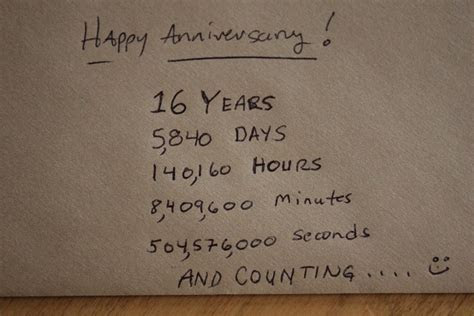 Happy Anniversary!
16 YEARS
5,840 DAYS
140,160 HOURS
8,409,600 Minutes
504,576,000 Seconds
AND COUNTING....